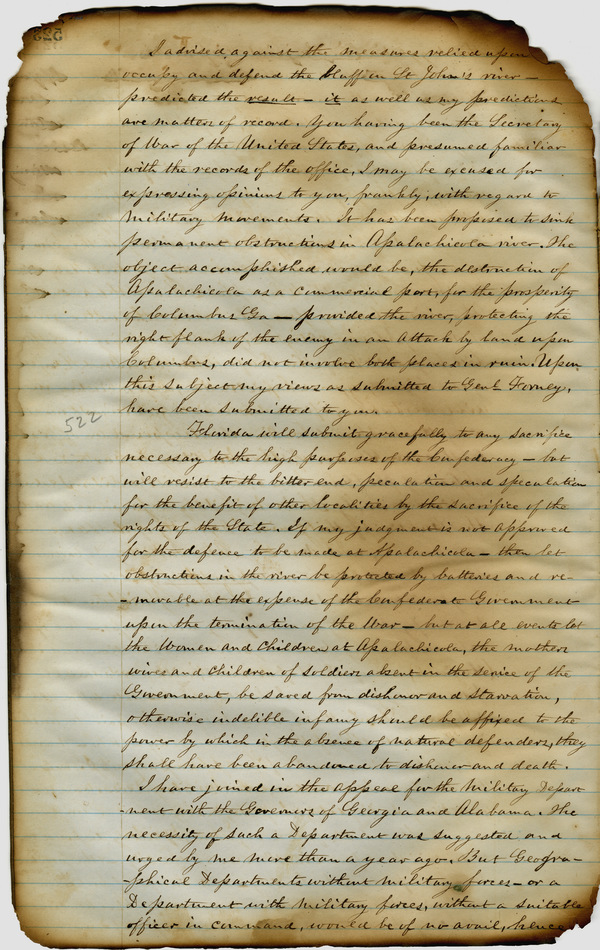 I advised against the measures relied upon
occupy and defend the bluff on St John's river—
predicted the result — it as well as my predictions
are matters of record. You having been the Secretary
of War of the United States, and presumed familiar
with the records of the office, I may be excused for
expressing opinions to you, frankly, with regard to
Military movements. It has been proposed to sink
permanent obstructions in Apalachicola river. The
object accomplished would be, the destruction of
Apalachicola as a commercial port, for the prosperity
of Columbus Ga — provided the river, protecting the
right flank of the enemy in an attack by land upon
Columbus, did not involve both places in ruin. Upon
this subject my views as submitted to Genl. Forney,
have been submitted to you.
522
Florida will submit gracefully to any sacrifice
necessary to the high purposes of the Confederacy — but
will resist to the bitter end, peculation and speculation
for the benefit of other localities by the sacrifice of the
rights of the State. If my judgment is not approved
for the defence to be made at Apalachicola — then let
obstructions in the river be protected by batteries and re-
-movable at the expense of the Confederate Government
upon the termination of the War — but at all events let
the Women and Children at Apalachicola, the mothers
wives and children of soldiers absent in the service of the
Government, be saved from dishonor and starvation,
otherwise indelible infamy should be affixed to the
power by which in the absence of natural defenders, they
shall have been abandoned to dishonor and death.
I have joined in the appeal for the Military Depart-
-ment with the Governors of Georgia and Alabama. The
necessity of such a Department was suggested and
urged by me more than a year ago. But Geogra-
-phical Departments without military forces — or a
Department with military forces, without a suitable
officer in command, would be of no avail, hence